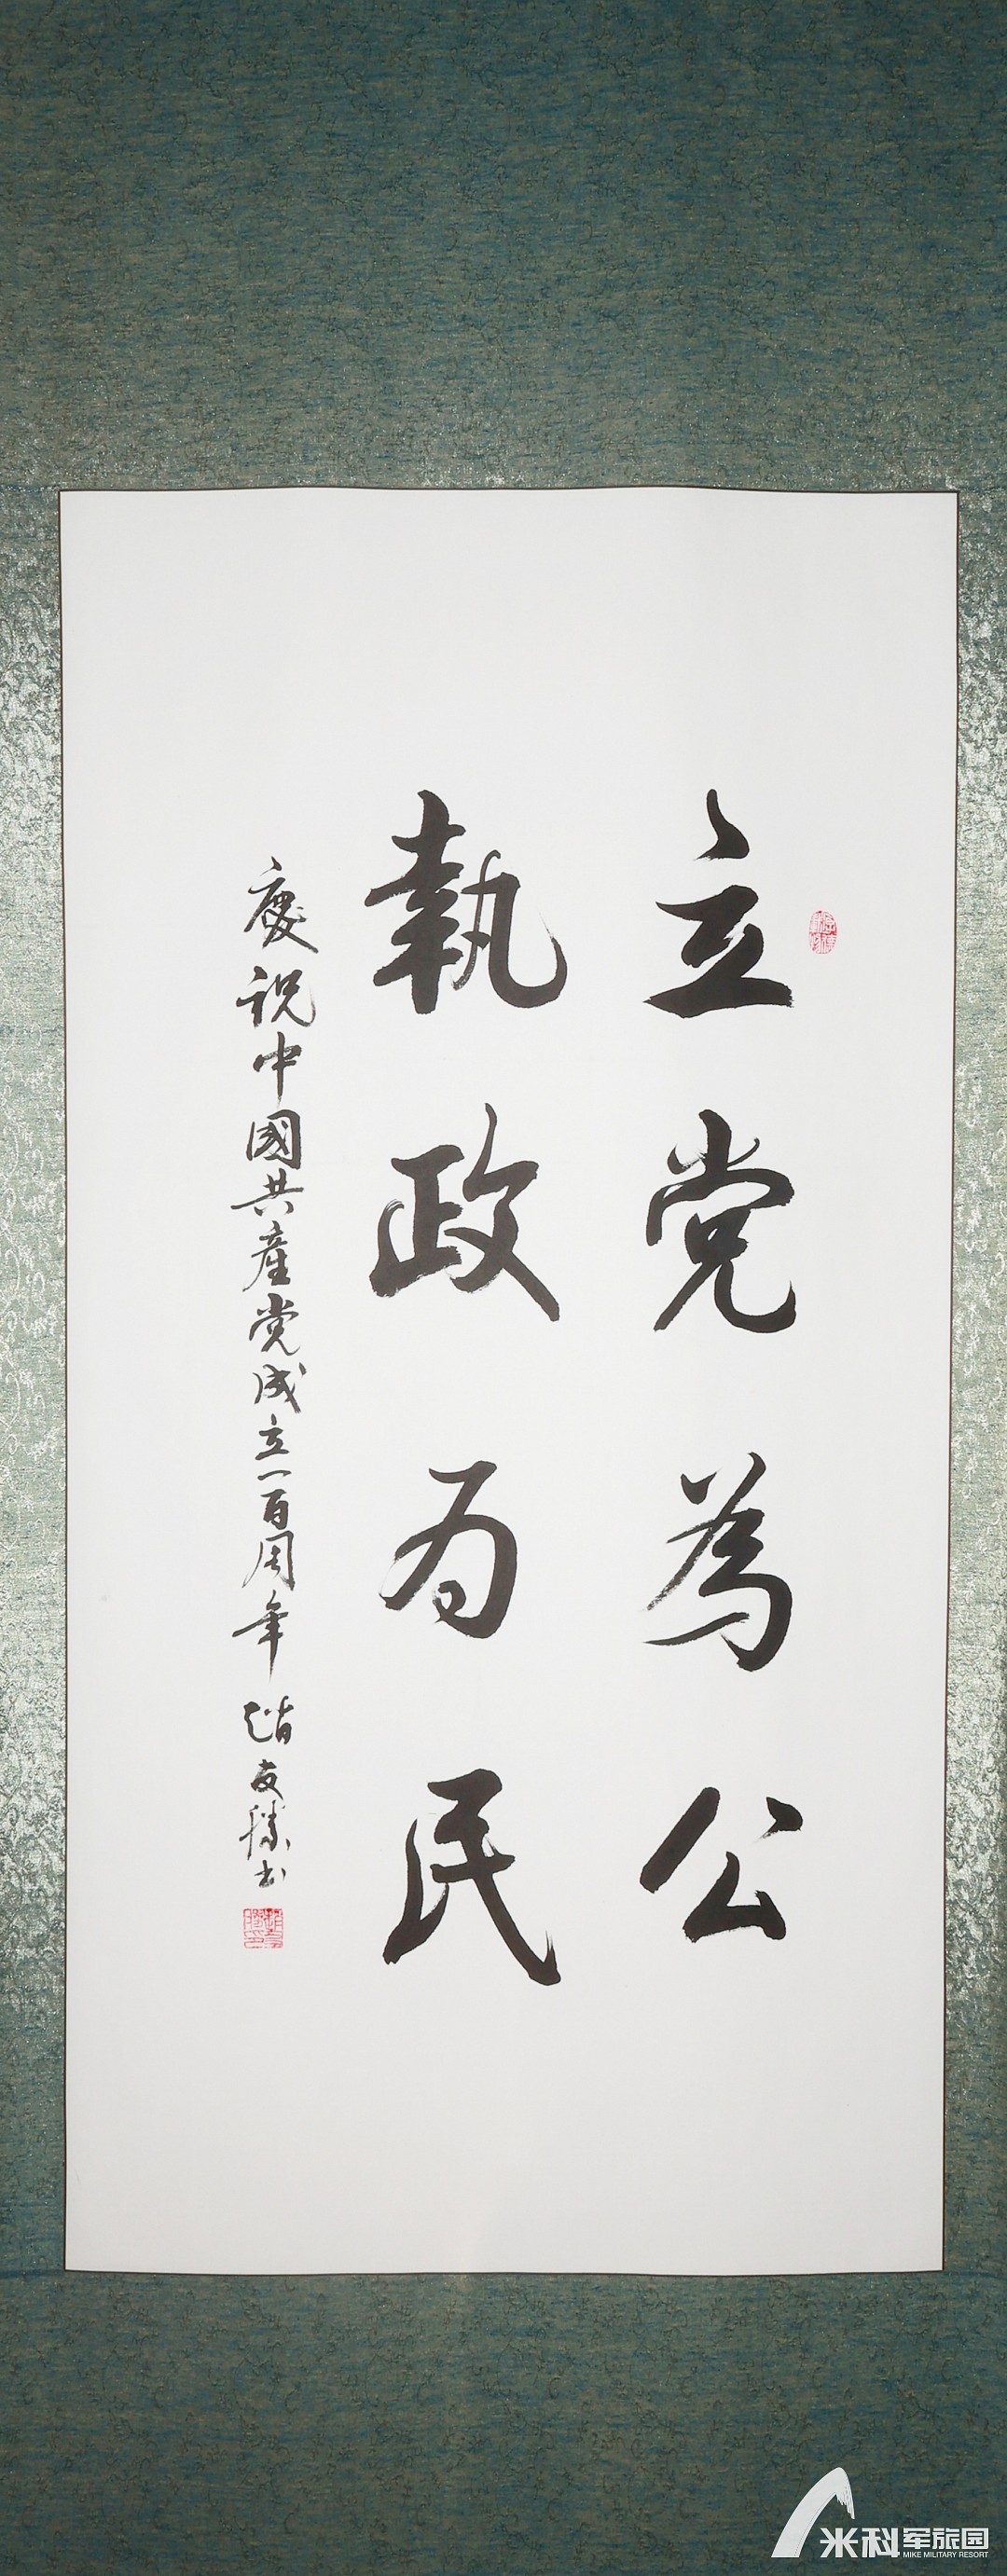 立党為公
執政为民
慶祝中國共産党成立一百周年 趙友勝书
米科军旅园
MIKE MILITARY RESORT